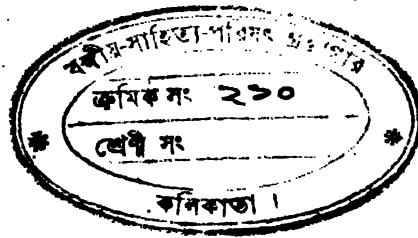 বঙ্গীয়-সাহিত্য-পরিষৎ গ্রন্থাগার
ক্রমিক সং ২১০
শ্রেণী সং
কলিকাতা ।